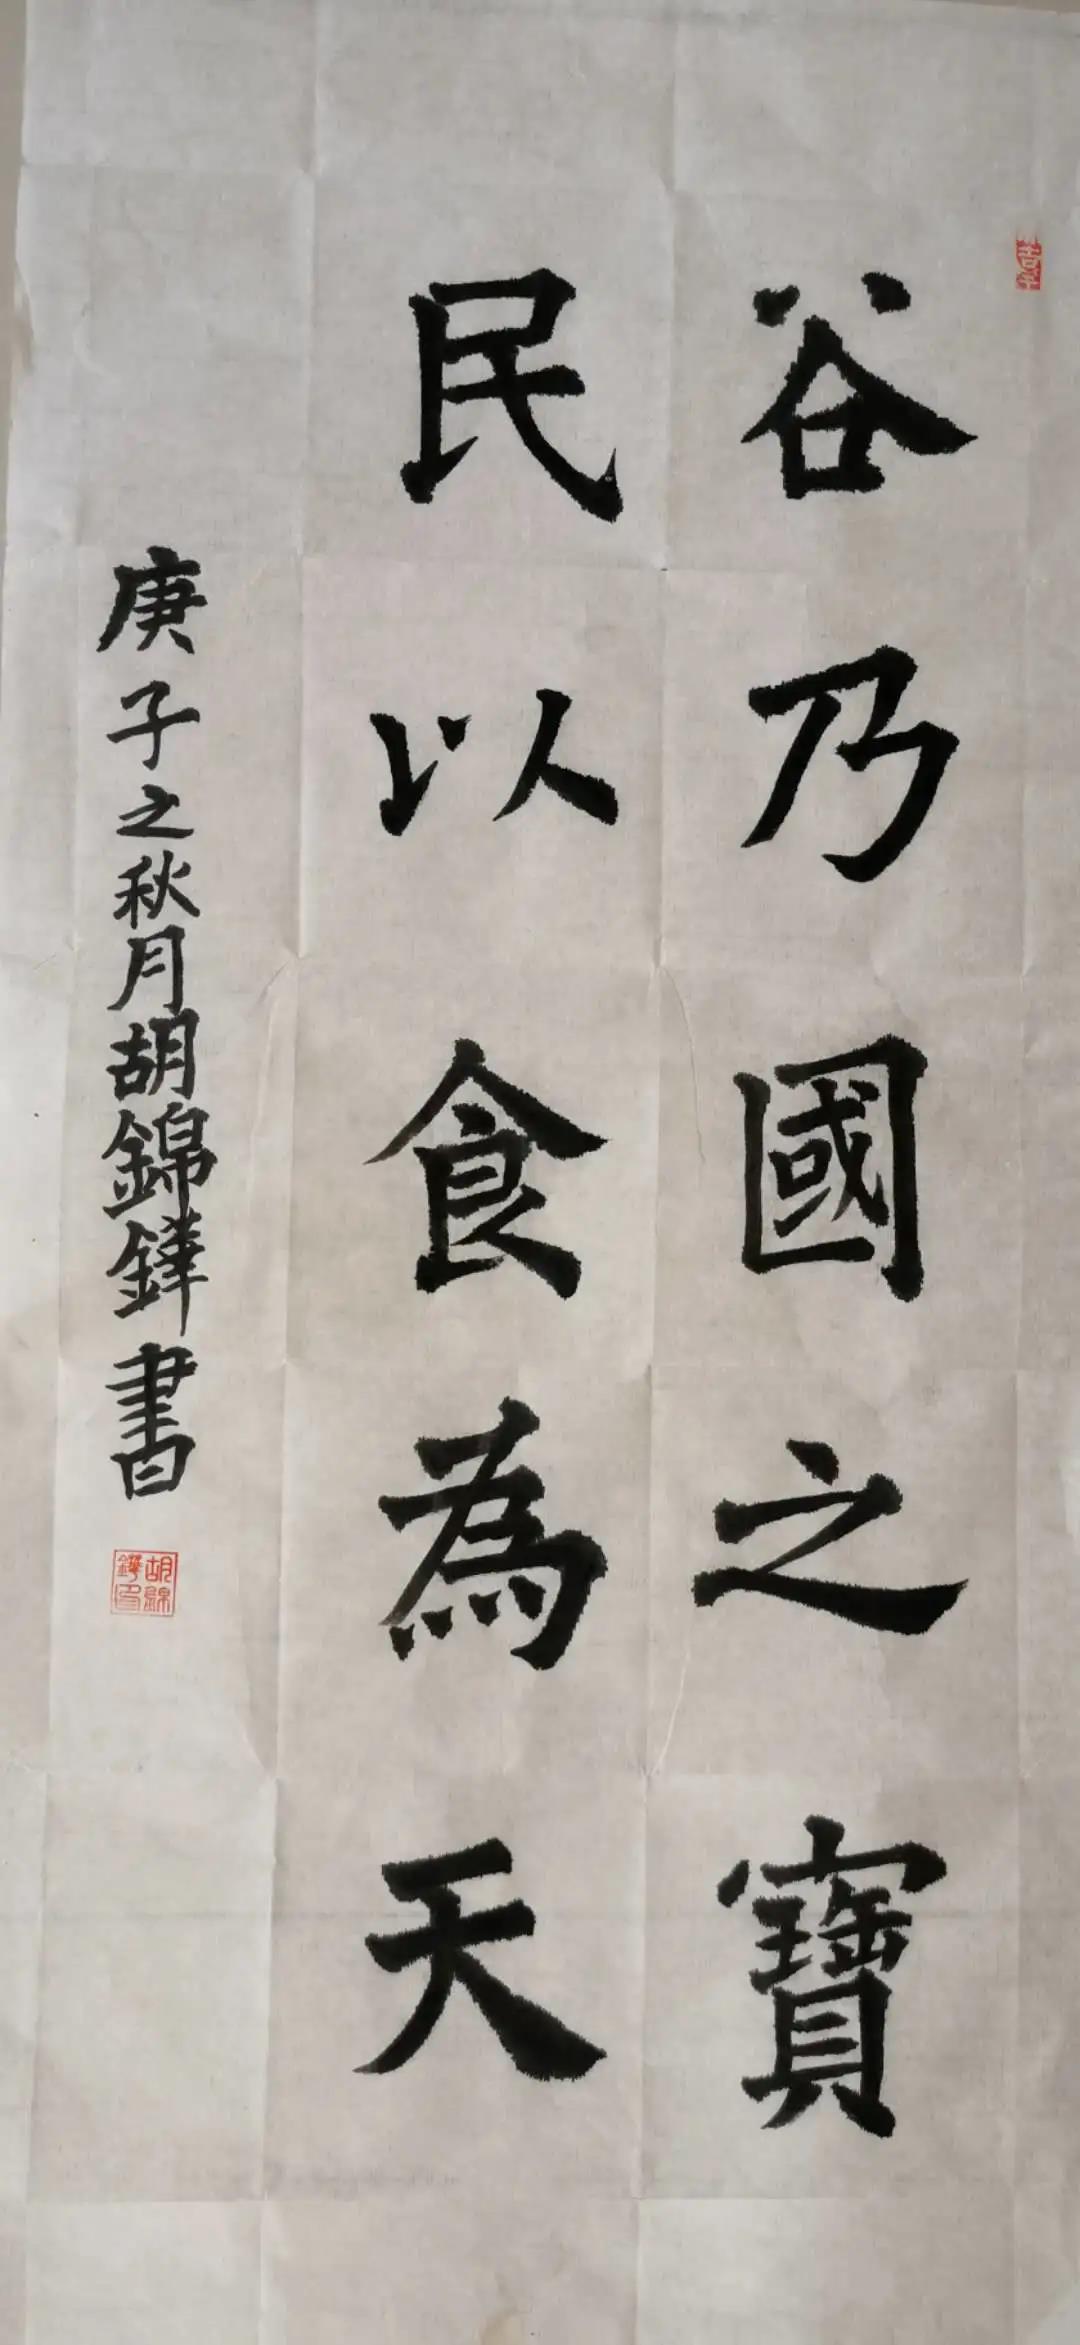 谷乃國之寶
民以食為天
庚子之秋月胡錦鏵書
胡錦鏵印